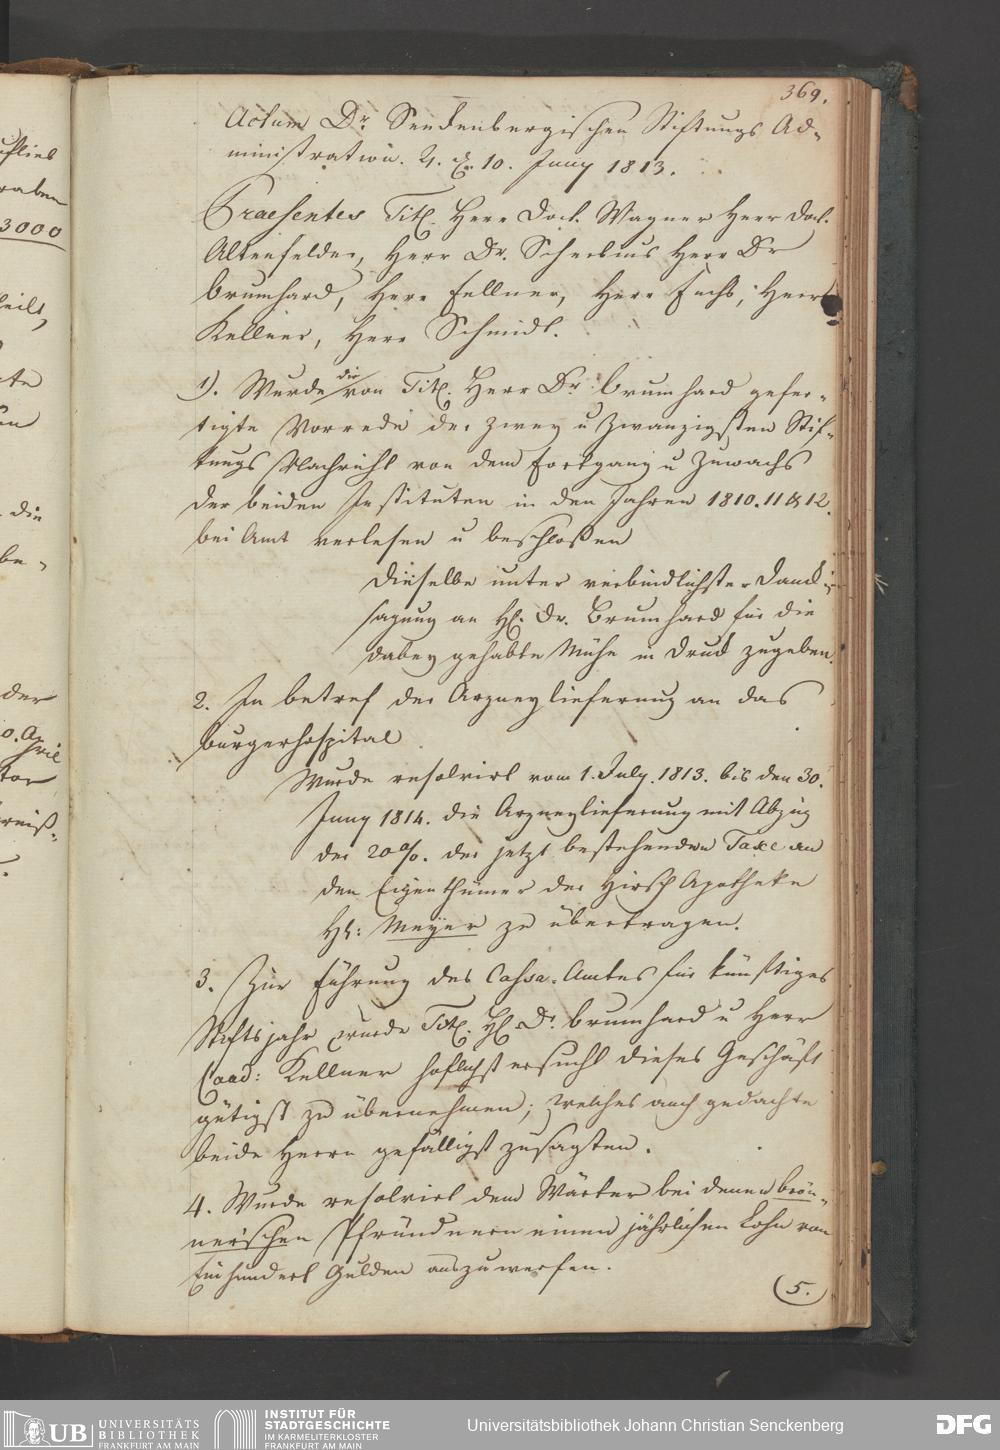 369.
Actum Dr. Senckenbergischen Stiftungs Ad-
ministration. d. 10. Juny 1813.
Praesentes Tit. Herr Doct. Wagner Herr Doct.
Altenfelder, Herr Dr. Scherbius Herr Dr
Brumhard, Herr Fellner, Herr Fuchs, Herr
Kellner, Herr Schmidt.
1). Wurde die von Tit. Herr Dr. Brumhard gefer-
tigte Vorrede der zwey u zwanzigsten Stif-
tungs Nachricht von dem Fortgang u Zuwachs
der beiden Instituten in den Jahren 1810. 11 & 12.
bei Amt verlesen u beschloßen
dieselbe unter verbindlichster Danck-
sagung an H. Dr. Brumhard für die
dabey gehabte Mühe in Druck zugeben.
2. In betref der Arzneylieferung an das
Burgerhospital
Wurde resolvirt vom 1. July. 1813. bis den 30.
Juny 1814. die Arzneylieferung mit Abzug
der 20%. der jetzt bestehenden Taxe an
den Eigenthümer der Hirsch Apotheke
H: Meyer zu übertragen.
3. Zur Führung des Cassa-Amtes für künftiges
Stiftsjahr wurde Tit. H. Dr. Brumhard u Herr
Cand: Kellner höflichst ersucht dieses Geschäft
gütigst zu übernehmen; welches auch gedachte
beide Herrn gefälligst zusagten.
4. Wurde resolvirt dem Wärter bei denen Brön-
nerischen Pfründnern einen jährlichen Lohn von
Einhundert Gulden auszuwerfen.
5.
raben
3000
die
be-
der
UB
UNIVERSITÄTS
BIBLIOTHEK
FRANKFURT AM MAIN
INSTITUT FÜR
STADTGESCHICHTE
IM KARMELITERKLOSTER
FRANKFURT AM MAIN
Universitätsbibliothek Johann Christian Senckenberg
DFG